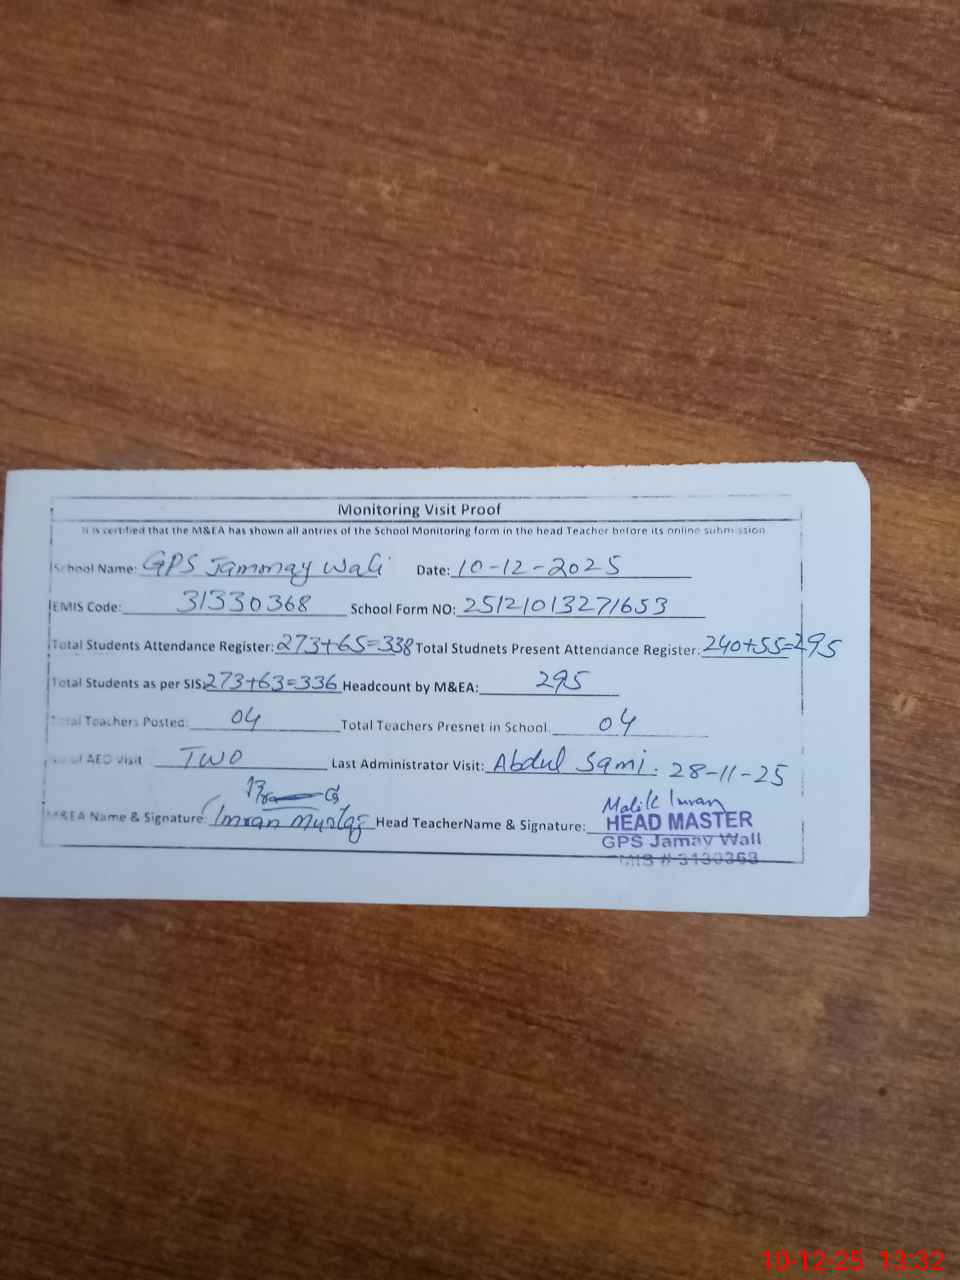 Monitoring Visit Proof
It is certified that the M&EA has shown all antries of the School Monitoring form in the head Teacher before its online submission
School Name: GPS Jammay Wali Date: 10-12-2025
EMIS Code: 31330368 School Form NO: 25121013271653
Total Students Attendance Register: 273+65=338 Total Studnets Present Attendance Register: 240+55=295
Total Students as per SIS: 273+63=336 Headcount by M&EA: 295
Total Teachers Posted: 04 Total Teachers Presnet in School. 04
of AEO Visit TWO Last Administrator Visit: Abdul Sami. 28-11-25
M&EA Name & Signature: Imran Head TeacherName & Signature: Malik Imran
HEAD MASTER
GPS Jamay Wali
MIS # 3130363
10-12-25 13:32